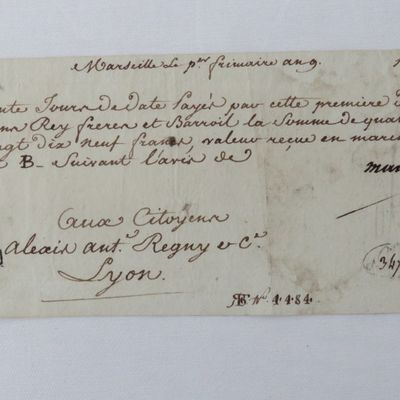 Marseille Le p.er frimaire an 9.
nte Jours de date Payés par cette premiere
Rey freres et Barroil la Somme de qua
ngt dix neuf francs, valeur reçue en mar
B- Suivant l'avis de
aux Citoyens
Alexis ant.e Regny & C.e
Lyon.
347
B N.º 1484